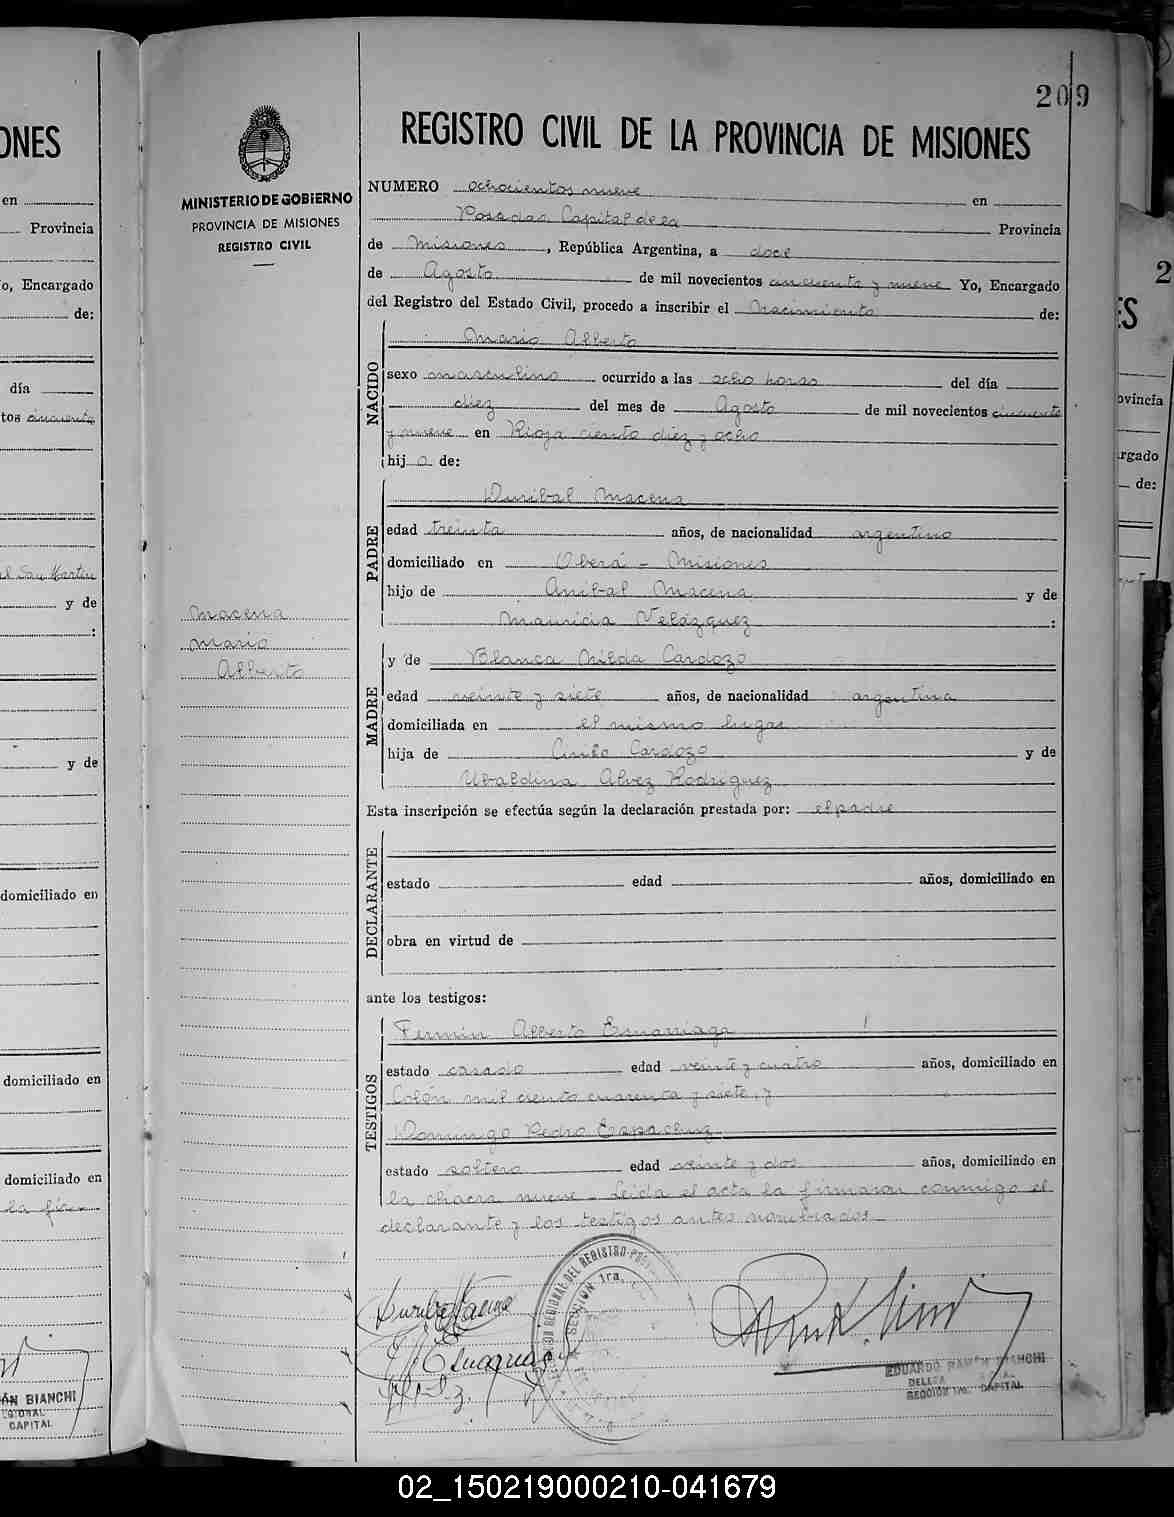 209
REGISTRO CIVIL DE LA PROVINCIA DE MISIONES
MINISTERIO DE GOBIERNO
PROVINCIA DE MISIONES
REGISTRO CIVIL
NUMERO ochocientos nueve en
Posadas Capital de la Provincia
de Misiones, República Argentina, a doce
de Agosto de mil novecientos cincuenta y nueve Yo, Encargado
del Registro del Estado Civil, procedo a inscribir el Nacimiento de:
NACIDO
Mario Alberto
sexo masculino ocurrido a las ocho horas del día
diez del mes de Agosto de mil novecientos cincuenta
y nueve en Rioja ciento diez y ocho
hijo de:
PADRE
Duribal Macena
edad treinta años, de nacionalidad argentino
domiciliado en Oberá - Misiones
hijo de Anibal Macena y de
Mauricia Velázquez :
Macena
Mario
Alberto
MADRE
y de Blanca Nilda Cardozo
edad veinte y siete años, de nacionalidad argentina
domiciliada en el mismo lugar
hija de Cirilo Cardozo y de
Ubaldina Alvez Rodriguez
Esta inscripción se efectúa según la declaración prestada por: el padre
DECLARANTE
estado edad años, domiciliado en
obra en virtud de
ante los testigos:
TESTIGOS
Fermin Alberto
estado casado edad veinte y cuatro años, domiciliado en
Colón mil ciento cuarenta y siete, y
Domingo Pedro
estado soltero edad veinte y dos años, domiciliado en
la chacra nueve - Leida el acta la firmaron conmigo el
declarante y los testigos antes nombrados
REGIONAL DEL REGISTRO
SECCION 1ra.
EDUARDO RAMÓN BIANCHI
SECCIÓN 1ra. CAPITAL
ONES
en
Provincia
o, Encargado
de:
día
tos cincuenta
San Martin
y de
:
y de
domiciliado en
domiciliado en
domiciliado en
ÓN BIANCHI
CAPITAL
2
ES
ovincia
rgado
de:
02_150219000210-041679